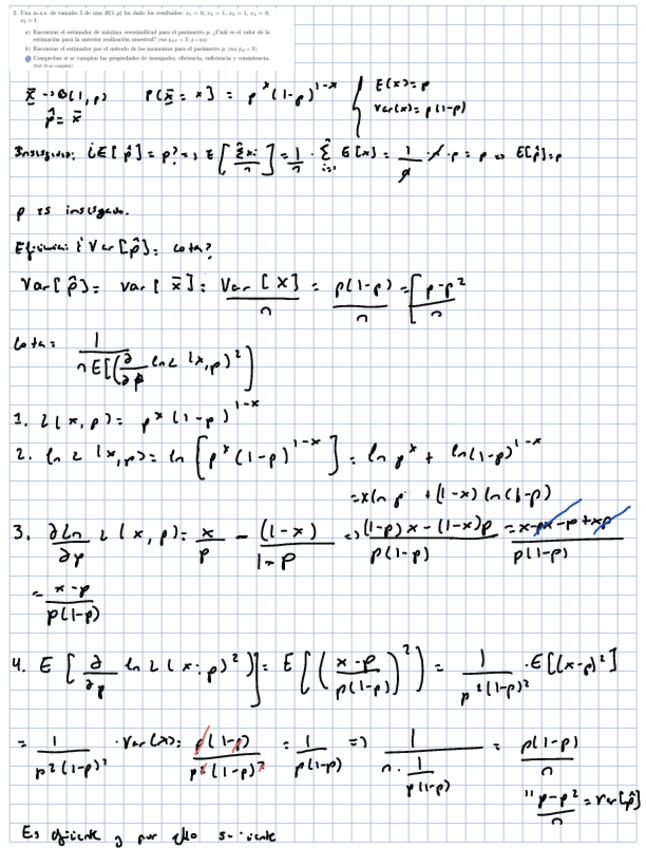 2. Una m.a.s. de tamaño 5 de una B(1, p) ha dado los resultados: x₁ = 0, x₂ = 1, x₃ = 1, x₄ = 0,
x₅ = 1.
a) Encontrar el estimador de máxima verosimilitud para el parámetro p. ¿Cuál es el valor de la
estimación para la anterior realización muestral?
b) Encontrar el estimador por el método de los momentos para el parámetro p.
Comprobar si se cumplen las propiedades de insesgadez, eficiencia, suficiencia y consistencia.
x → B(1, p) P[x = x] = p^x (1-p)^{1-x} { E(x) = p
Var(x) = p(1-p)
p̂ = x̄
¿E[p̂] = p? => E[Σxi/n] = 1/n · Σ E[x] = 1/n · n · p = p E[p̂] = p
p es insesgado.
¿Var[p̂] = cota?
Var[p̂] = Var[x̄] = Var[X]/n = p(1-p)/n = p-p²/n
Cota = 1/nE[(∂/∂p ln L(x,p)²]
1. L(x,p) = p^x (1-p)^{1-x}
2. ln L(x,p) = ln[p^x (1-p)^{1-x}] = ln p^x + ln(1-p)^{1-x}
= x ln p + (1-x) ln(1-p)
3. ∂ln/∂p L(x,p) = x/p - (1-x)/1-p => (1-p)x - (1-x)p/p(1-p) = x-px-p+xp/p(1-p)
= x-p/p(1-p)
4. E[∂/∂p ln L(x;p)²)] = E[(x-p/p(1-p))²] = 1/p²(1-p)² · E[(x-p)²]
= 1/p²(1-p)² · Var(x) = p(1-p)/p²(1-p)² = 1/p(1-p) => 1/n·1/p(1-p) = p(1-p)/n
" p-p²/n = Var[p̂]
Es eficiente y por ello suficiente